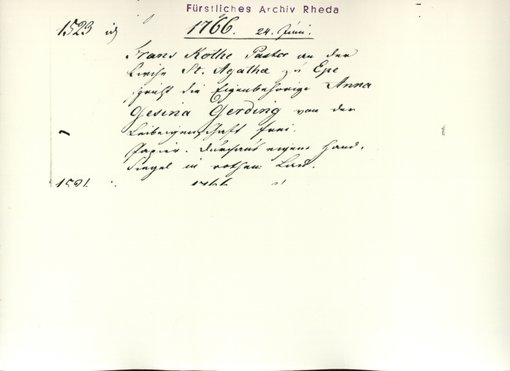 Fürstliches Archiv Rheda
1523 1766. 24. Juni.
Frans Kothe Pastor an der
Kirche St. Agatha zu Epe
gibt die Eigenbehörige Anna
Gesina Gerding von der
Leibeigenschaft frei.
Papier. Durchaus eigene Hand.
Siegel in rothem Lack.